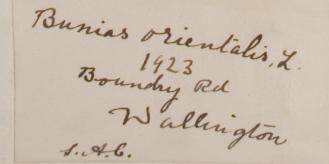 Bunias orientalis, L.
1923
Boundry Rd
Wallington
S.A.C.